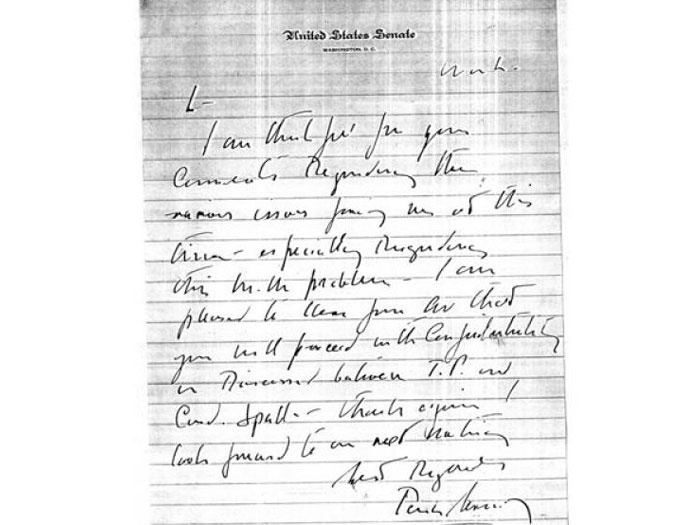 United States Senate
WASHINGTON, D. C.
L-
I am thankful for your
Comments Regarding the
various issues facing me at this
time - especially Regarding
this problem - I am
pleased to hear from that
you will proceed with Confidentiality
as Discussed between T.P. and
Card. Spell - thanks again! I
look forward to our next meeting
best Regards